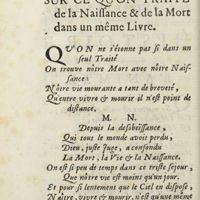 SUR CE QU'ON TRAITE
de la Naissance & de la Mort
dans un même Livre.
QU'ON ne s'étonne pas si dans un
seul Traité
On trouve nôtre Mort avec nôtre Nais-
sance:
Nôtre vie mourante a tant de breveté,
Qu'entre vivre & mourir il n'est point de
distance.
M. N.
Depuis la desobeïssance,
Qui tout le monde avoit perdu,
Dieu, juste Juge, a confondu
La Mort, la Vie & la Naissance.
On est si peu de temps dans ce triste séjour,
Que nôtre vie est moins qu'un jour.
Et pour si lentement que le Ciel en dispose,
Naître, vivre & mourir, n'est qu'une même